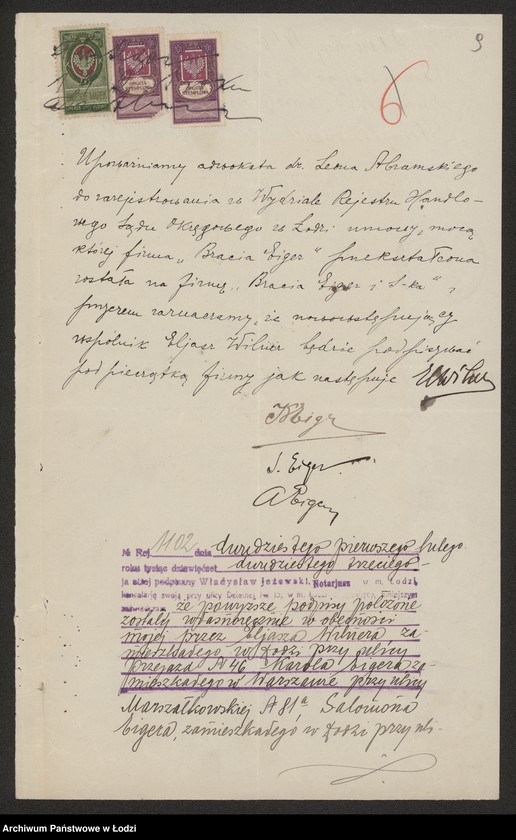 9
6
OPŁATA STEMPLOWA
OPŁATA STEMPLOWA
Upoważniamy adwokata dr. Leona Abramskiego
do zarejestrowania w Wydziale Rejestru Handlo-
wego Sądu Okręgowego w Łodzi umowy, mocą
której firma „Bracia Eiger" przekształcona
została na firmę „Bracia Eiger i S-ka",
przyczem zaznaczamy, że nowowstępujący
wspólnik Eljasz Wilner będzie podpisywać
pod pieczątką firmy jak następuje EWilner
KEiger
S. Eiger
AEiger
№ Rej. 1102 dnia dwudziestego pierwszego lutego
roku tysiąc dziewięćset dwudziestego trzeciego
ja niżej podpisany Władysław Jeżewski, Notarjusz w m. Łodzi,
kancelarję swoją przy ulicy
że powyższe podpisy położone
zostały własnoręcznie w obecności
mojej przez Eljasza Wilnera, za-
mieszkałego w Łodzi przy ulicy
Przejazd № 46 Karola Eigera za-
mieszkałego w Warszawie przy ulicy
Marszałkowskiej № 81a Salomona
Eigera, zamieszkałego w Łodzi przy uli-
Archiwum Państwowe w Łodzi